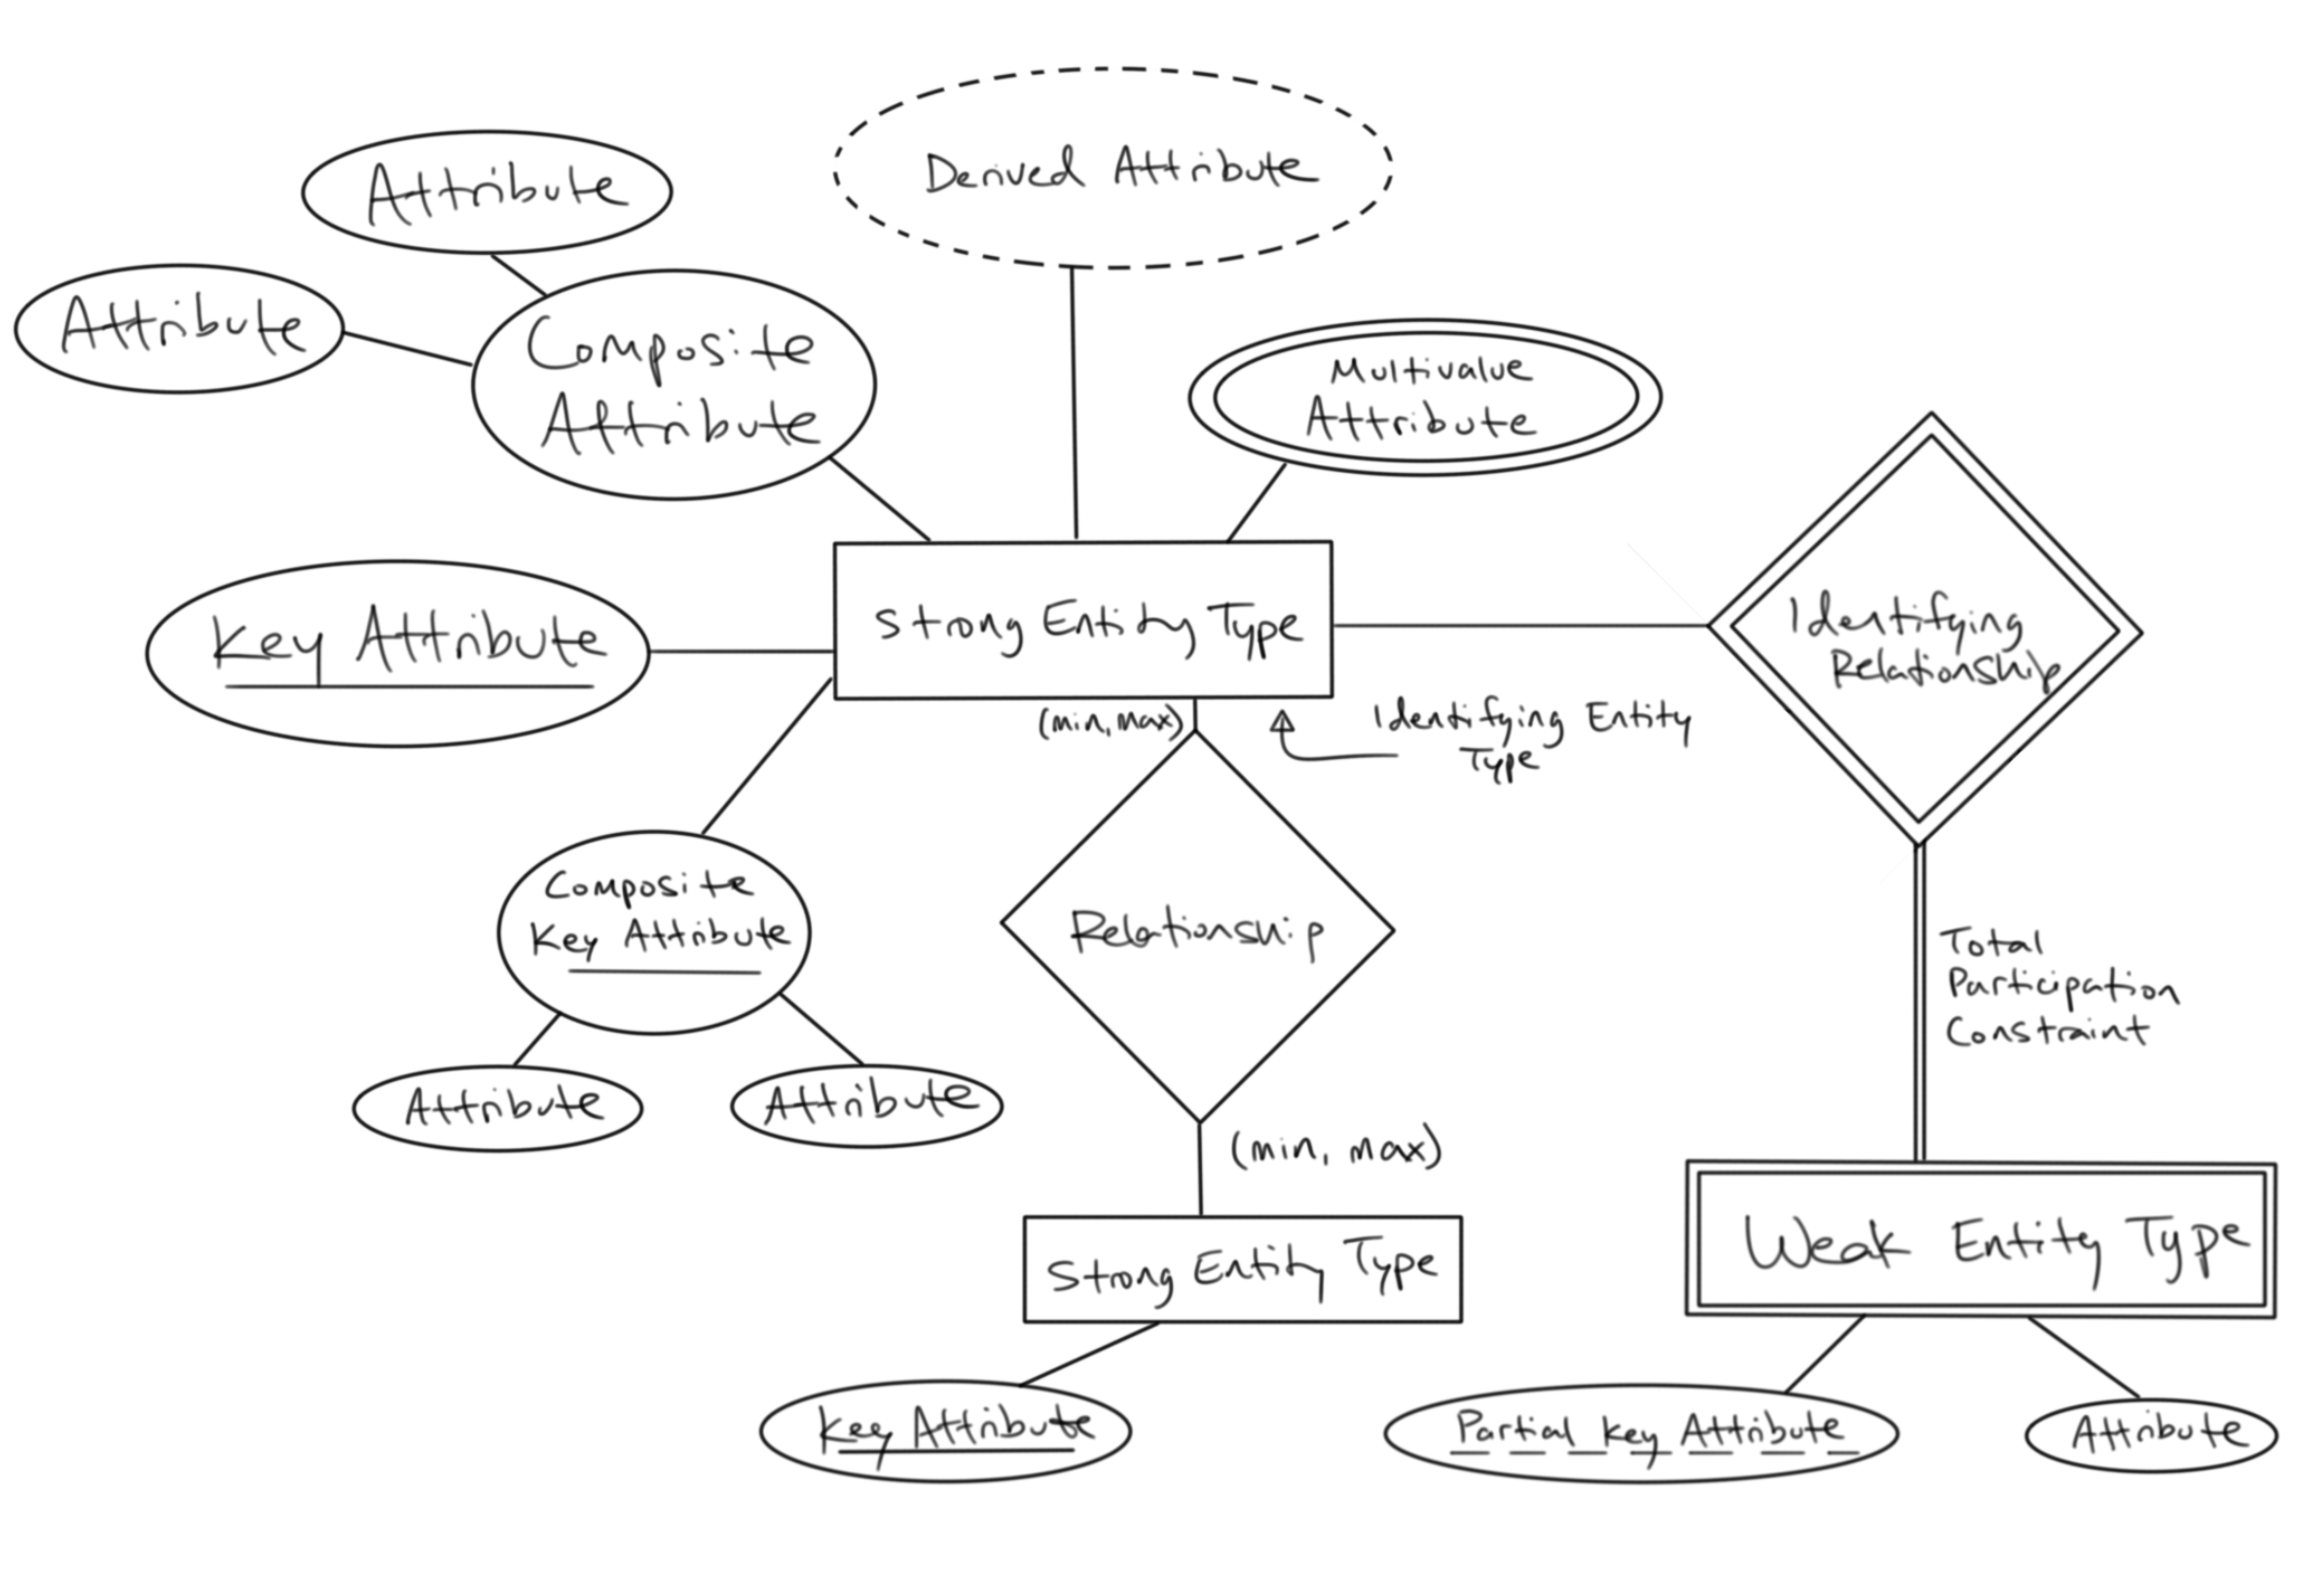 Derived Attribute
Attribute
Attribute
Composite
Attribute
Multivalue
Attribute
Key Attribute
Strong Entity Type
Identifying
Relationship
(min, max)
Identifying Entity
Type
Composite
Key Attribute
Relationship
Total
Participation
Constraint
Attribute
Attribute
(min, max)
Strong Entity Type
Weak Entity Type
Key Attribute
Partial Key Attribute
Attribute